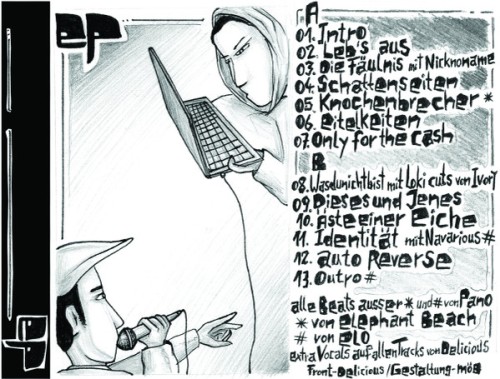 ep
A
01. Intro
02. Leb's aus
03. Die Fäulnis mit Nicknoname
04. Schattenseiten
05. Knochenbrecher *
06. Eitelkeiten
07. Only for the cash
B
08. Wasdunichtbist mit Loki cuts von Ivory
09. Dieses und Jenes
10. Äste einer Eiche
11. Identität mit Navarious #
12. auto Reverse
13. Outro #
alle Beats ausser * und # von Pano
* von elephant Beach
# von elo
extra Vocals auf allen Tracks von Delicious
Front-Delicious/Gestaltung-möb